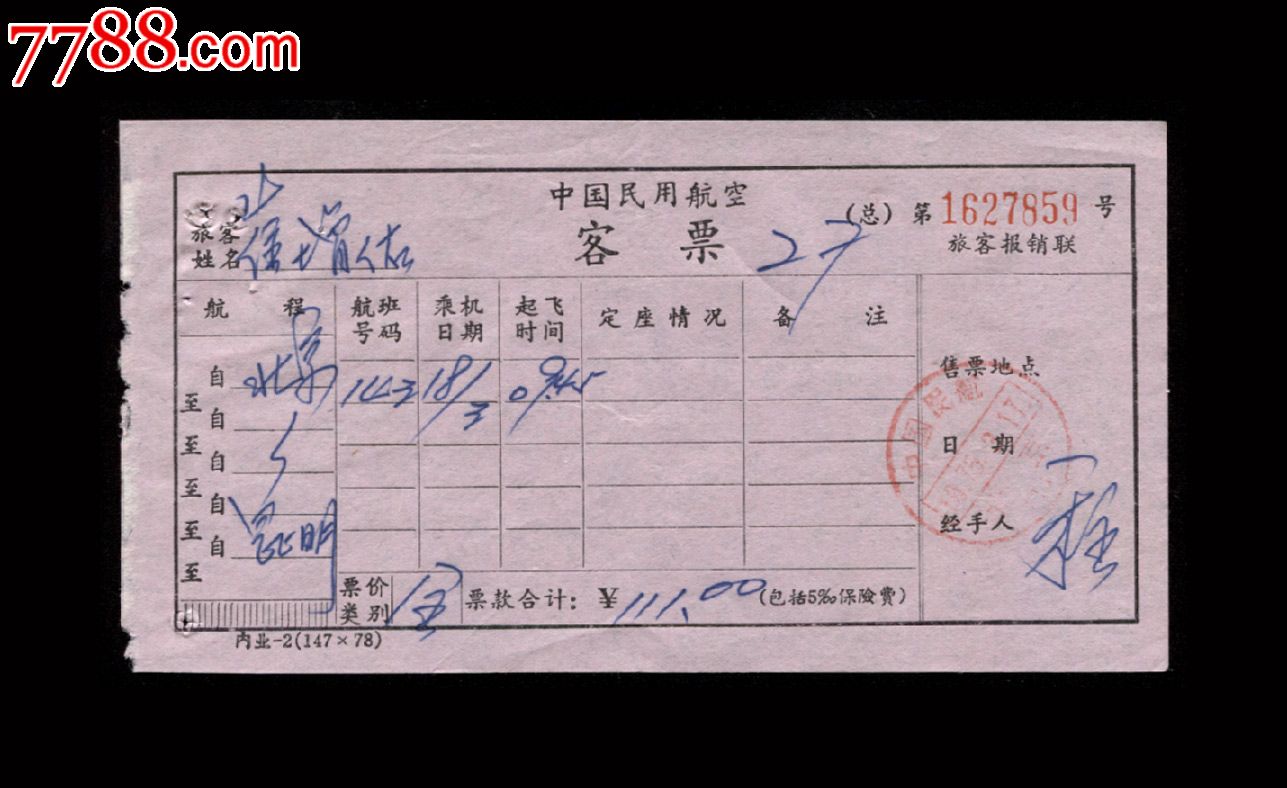 7788.com
中国民用航空
客票
(总) 第1627859号
旅客报销联
旅客
姓名
27
航程
航班
号码
乘机
日期
起飞
时间
定座情况
备注
自 北京
至
自
至
自
至
自 昆明
至
自
至
18/3
售票地点
日期
经手人
中国民航
票价
类别
全
票款合计: ¥111.00 (包括5‰保险费)
内业-2(147×78)